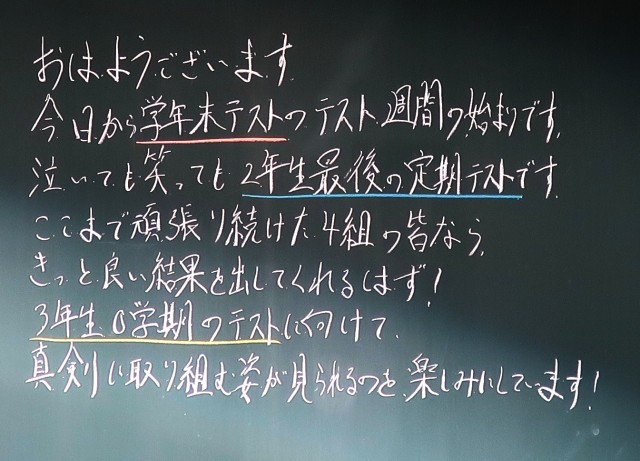 おはようございます。
今日から学年末テストのテスト週間の始まりです。
泣いても笑っても2年生最後の定期テストです。
ここまで頑張り続けた4組の皆なら、
きっと良い結果を出してくれるはず！
3年生0学期のテストに向けて、
真剣に取り組む姿が見られるのを楽しみにしています！